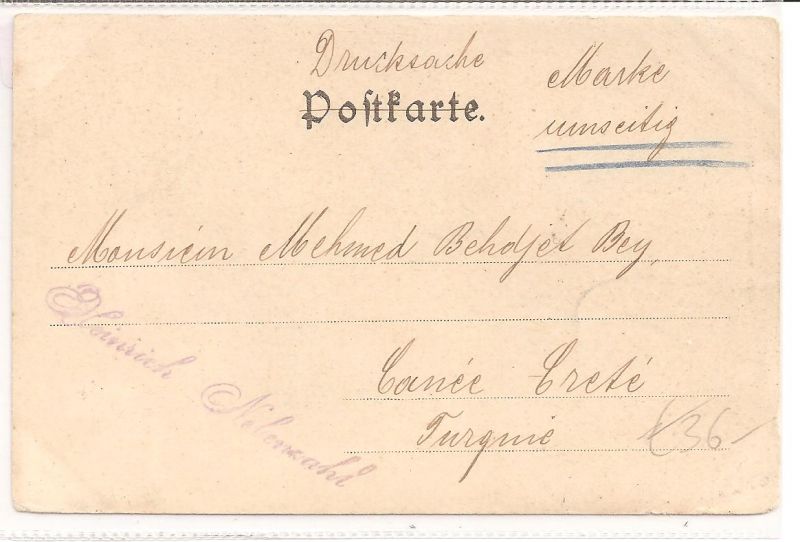 Drucksache
Postkarte.
Marke
umseitig
Monsieur Mehmed Behdjet Bey,
Heinrich Nelenzahl
Canée Creté
Turquie
£36-